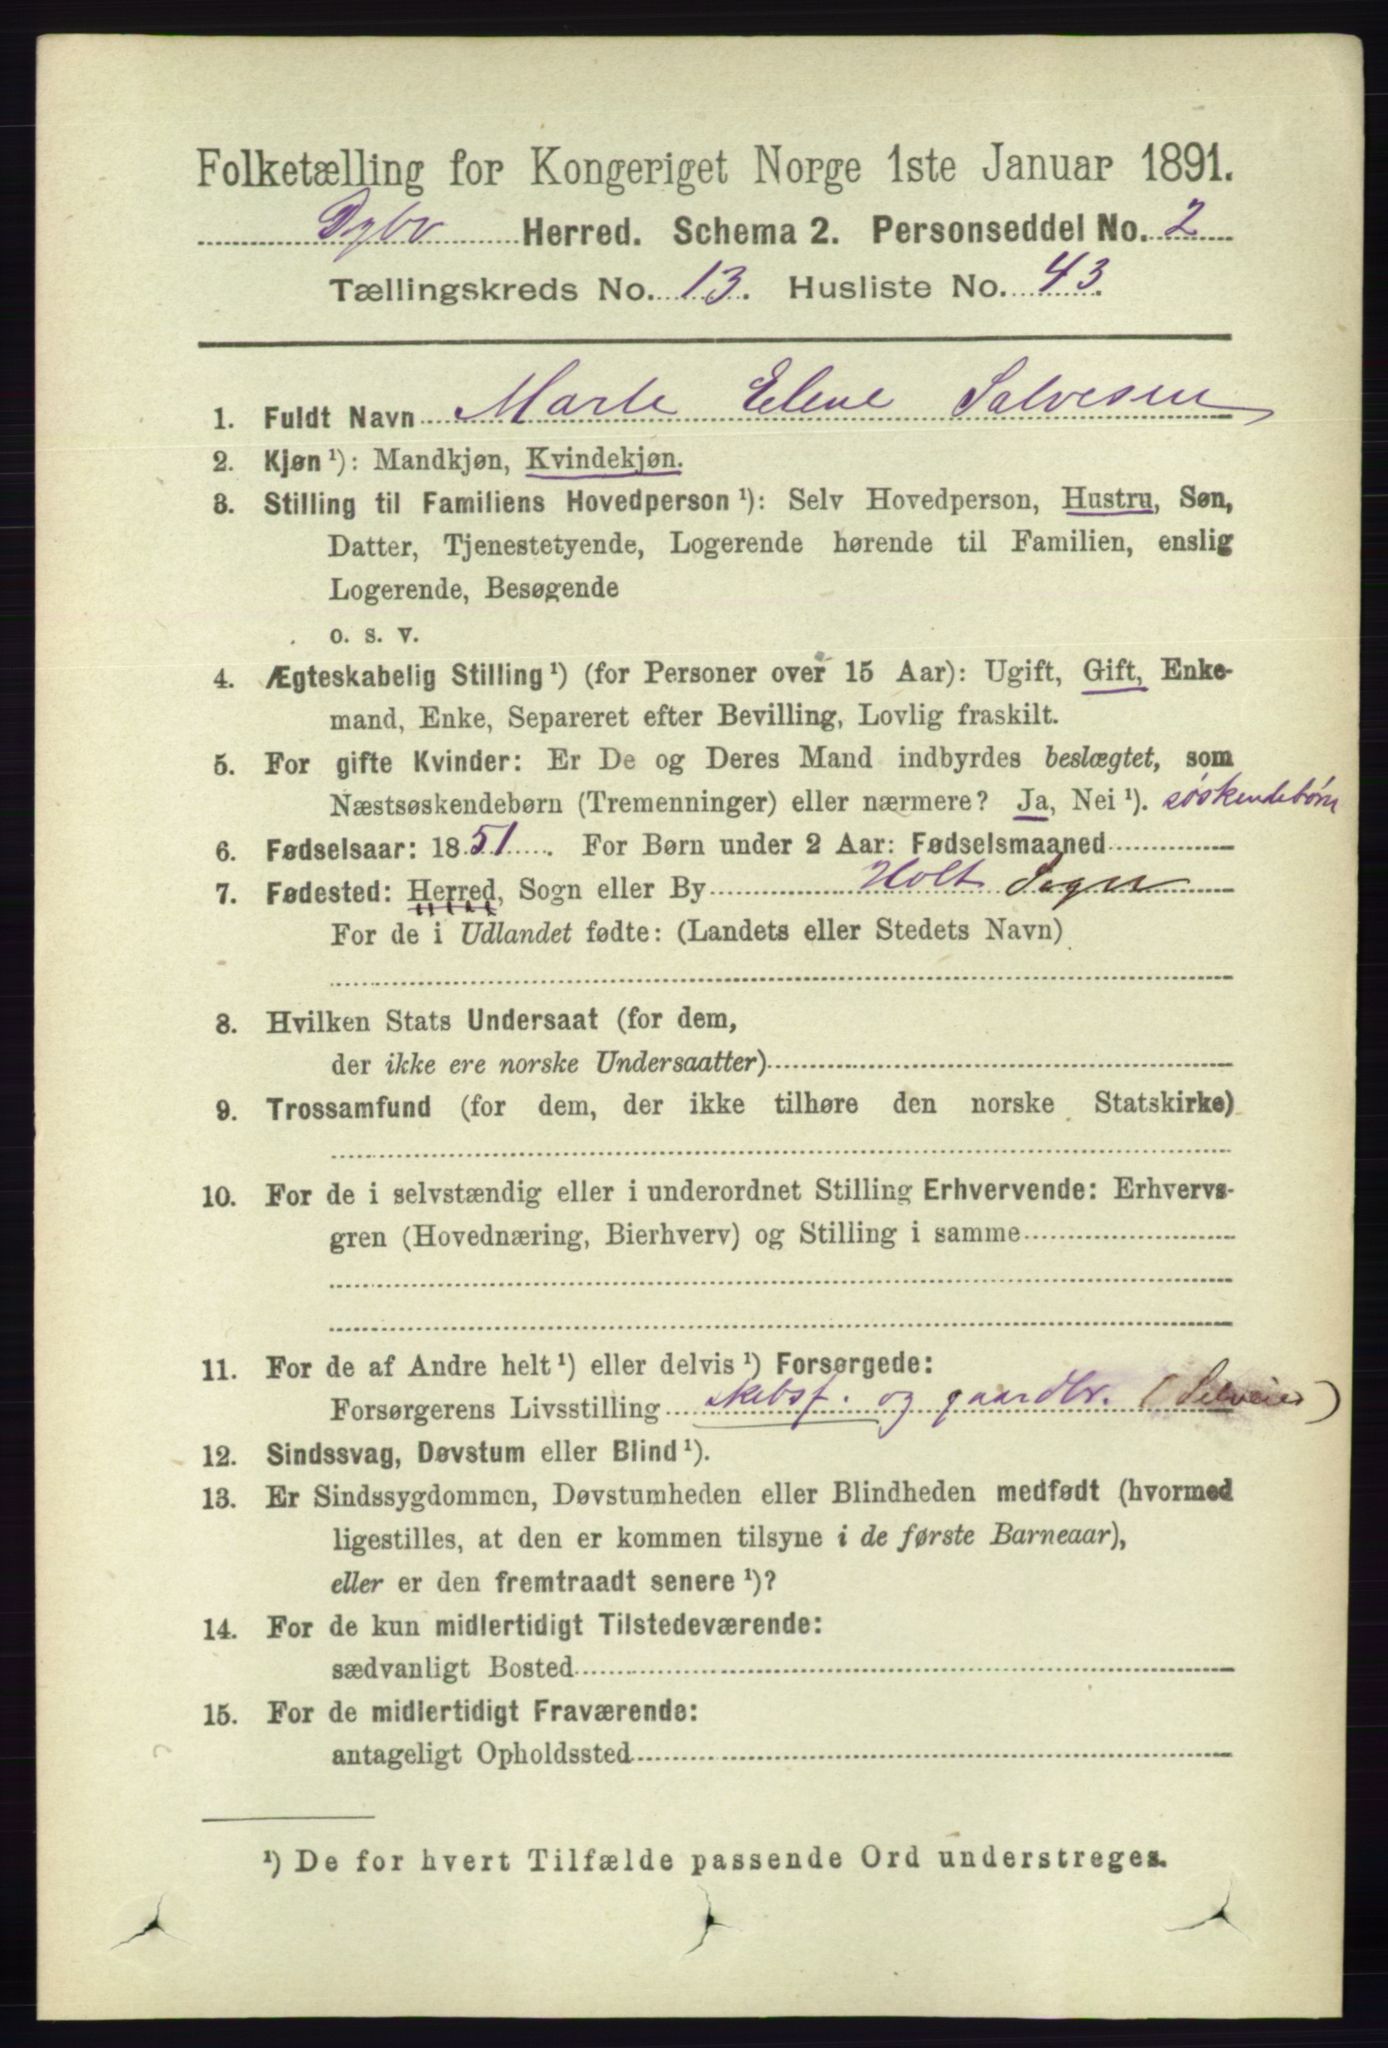 Folketælling for Kongeriget Norge 1ste Januar 1891.
Dybv Herred. Schema 2. Personseddel No. 2
Tællingskreds No. 13. Husliste No. 43.
1. Fuldt Navn Marte Elene Salvesen
2. Kjøn ¹): Mandkjøn, Kvindekjøn.
3. Stilling til Familiens Hovedperson ¹): Selv Hovedperson, Hustru, Søn,
Datter, Tjenestetyende, Logerende hørende til Familien, enslig
Logerende, Besøgende
o. s. v.
4. Ægteskabelig Stilling ¹) (for Personer over 15 Aar): Ugift, Gift, Enke-
mand, Enke, Separeret efter Bevilling, Lovlig fraskilt.
5. For gifte Kvinder: Er De og Deres Mand indbyrdes beslægtet, som
Næstsøskendebørn (Tremenninger) eller nærmere? Ja, Nei ¹). søskendebørn
6. Fødselsaar: 1851. For Børn under 2 Aar: Fødselsmaaned
7. Fødested: Herred, Sogn eller By Holt Sogn
For de i Udlandet fødte: (Landets eller Stedets Navn)
8. Hvilken Stats Undersaat (for dem,
der ikke ere norske Undersaatter)
9. Trossamfund (for dem, der ikke tilhøre den norske Statskirke)
10. For de i selvstændig eller i underordnet Stilling Erhvervende: Erhvervs-
gren (Hovednæring, Bierhverv) og Stilling i samme
11. For de af Andre helt ¹) eller delvis ¹) Forsørgede:
Forsørgerens Livsstilling skibsf. og gaardbr. (Selveier)
12. Sindssvag, Døvstum eller Blind ¹).
13. Er Sindssygdommen, Døvstumheden eller Blindheden medfødt (hvormed
ligestilles, at den er kommen tilsyne i de første Barneaar),
eller er den fremtraadt senere ¹)?
14. For de kun midlertidigt Tilstedeværende:
sædvanligt Bosted
15. For de midlertidigt Fraværende:
antageligt Opholdssted
¹) De for hvert Tilfælde passende Ord understreges.